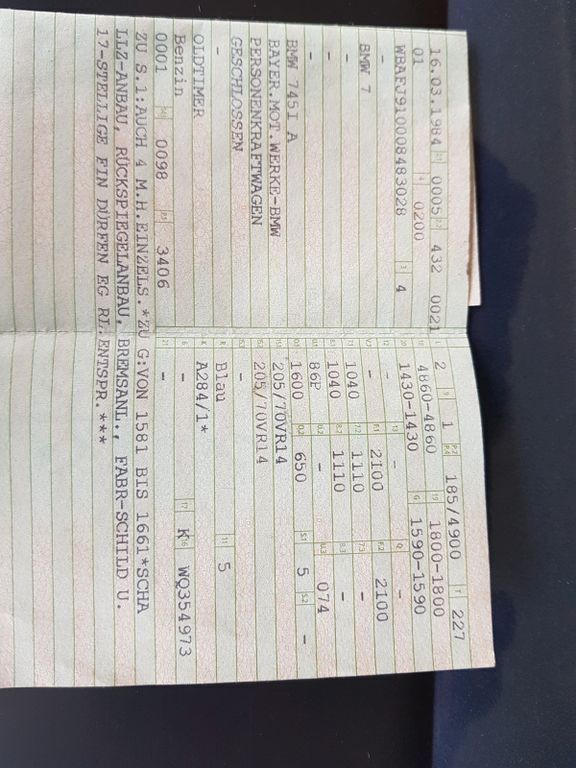 16.03.1984 0005 432 0021
01 0200
WBAFJ910008483028 4
-
BMW 7
-
-
-
BMW 745I A
BAYER.MOT.WERKE-BMW
PERSONENKRAFTWAGEN
GESCHLOSSEN
-
OLDTIMER
Benzin
0001 0098 3406
2 1 185/4900 227
4860-4860 1800-1800
1430-1430 1590-1590
- - -
- 2100 2100
1040 1110 -
1040 1110 -
86P - 074
1600 650 5 -
205/70VR14
205/70VR14
-
Blau 5
A284/1*
- K WQ354973
-
ZU S.1:AUCH 4 M.H.EINZELS.*ZU G:VON 1581 BIS 1661*SCHA
LLZ-ANBAU, RÜCKSPIEGELANBAU, BREMSANL., FABR-SCHILD U.
17-STELLIGE FIN DÜRFEN EG RL.ENTSPR.***